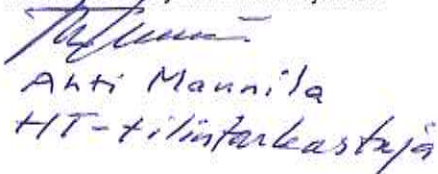 Ahti Mannila
HT-tilintarkastaja